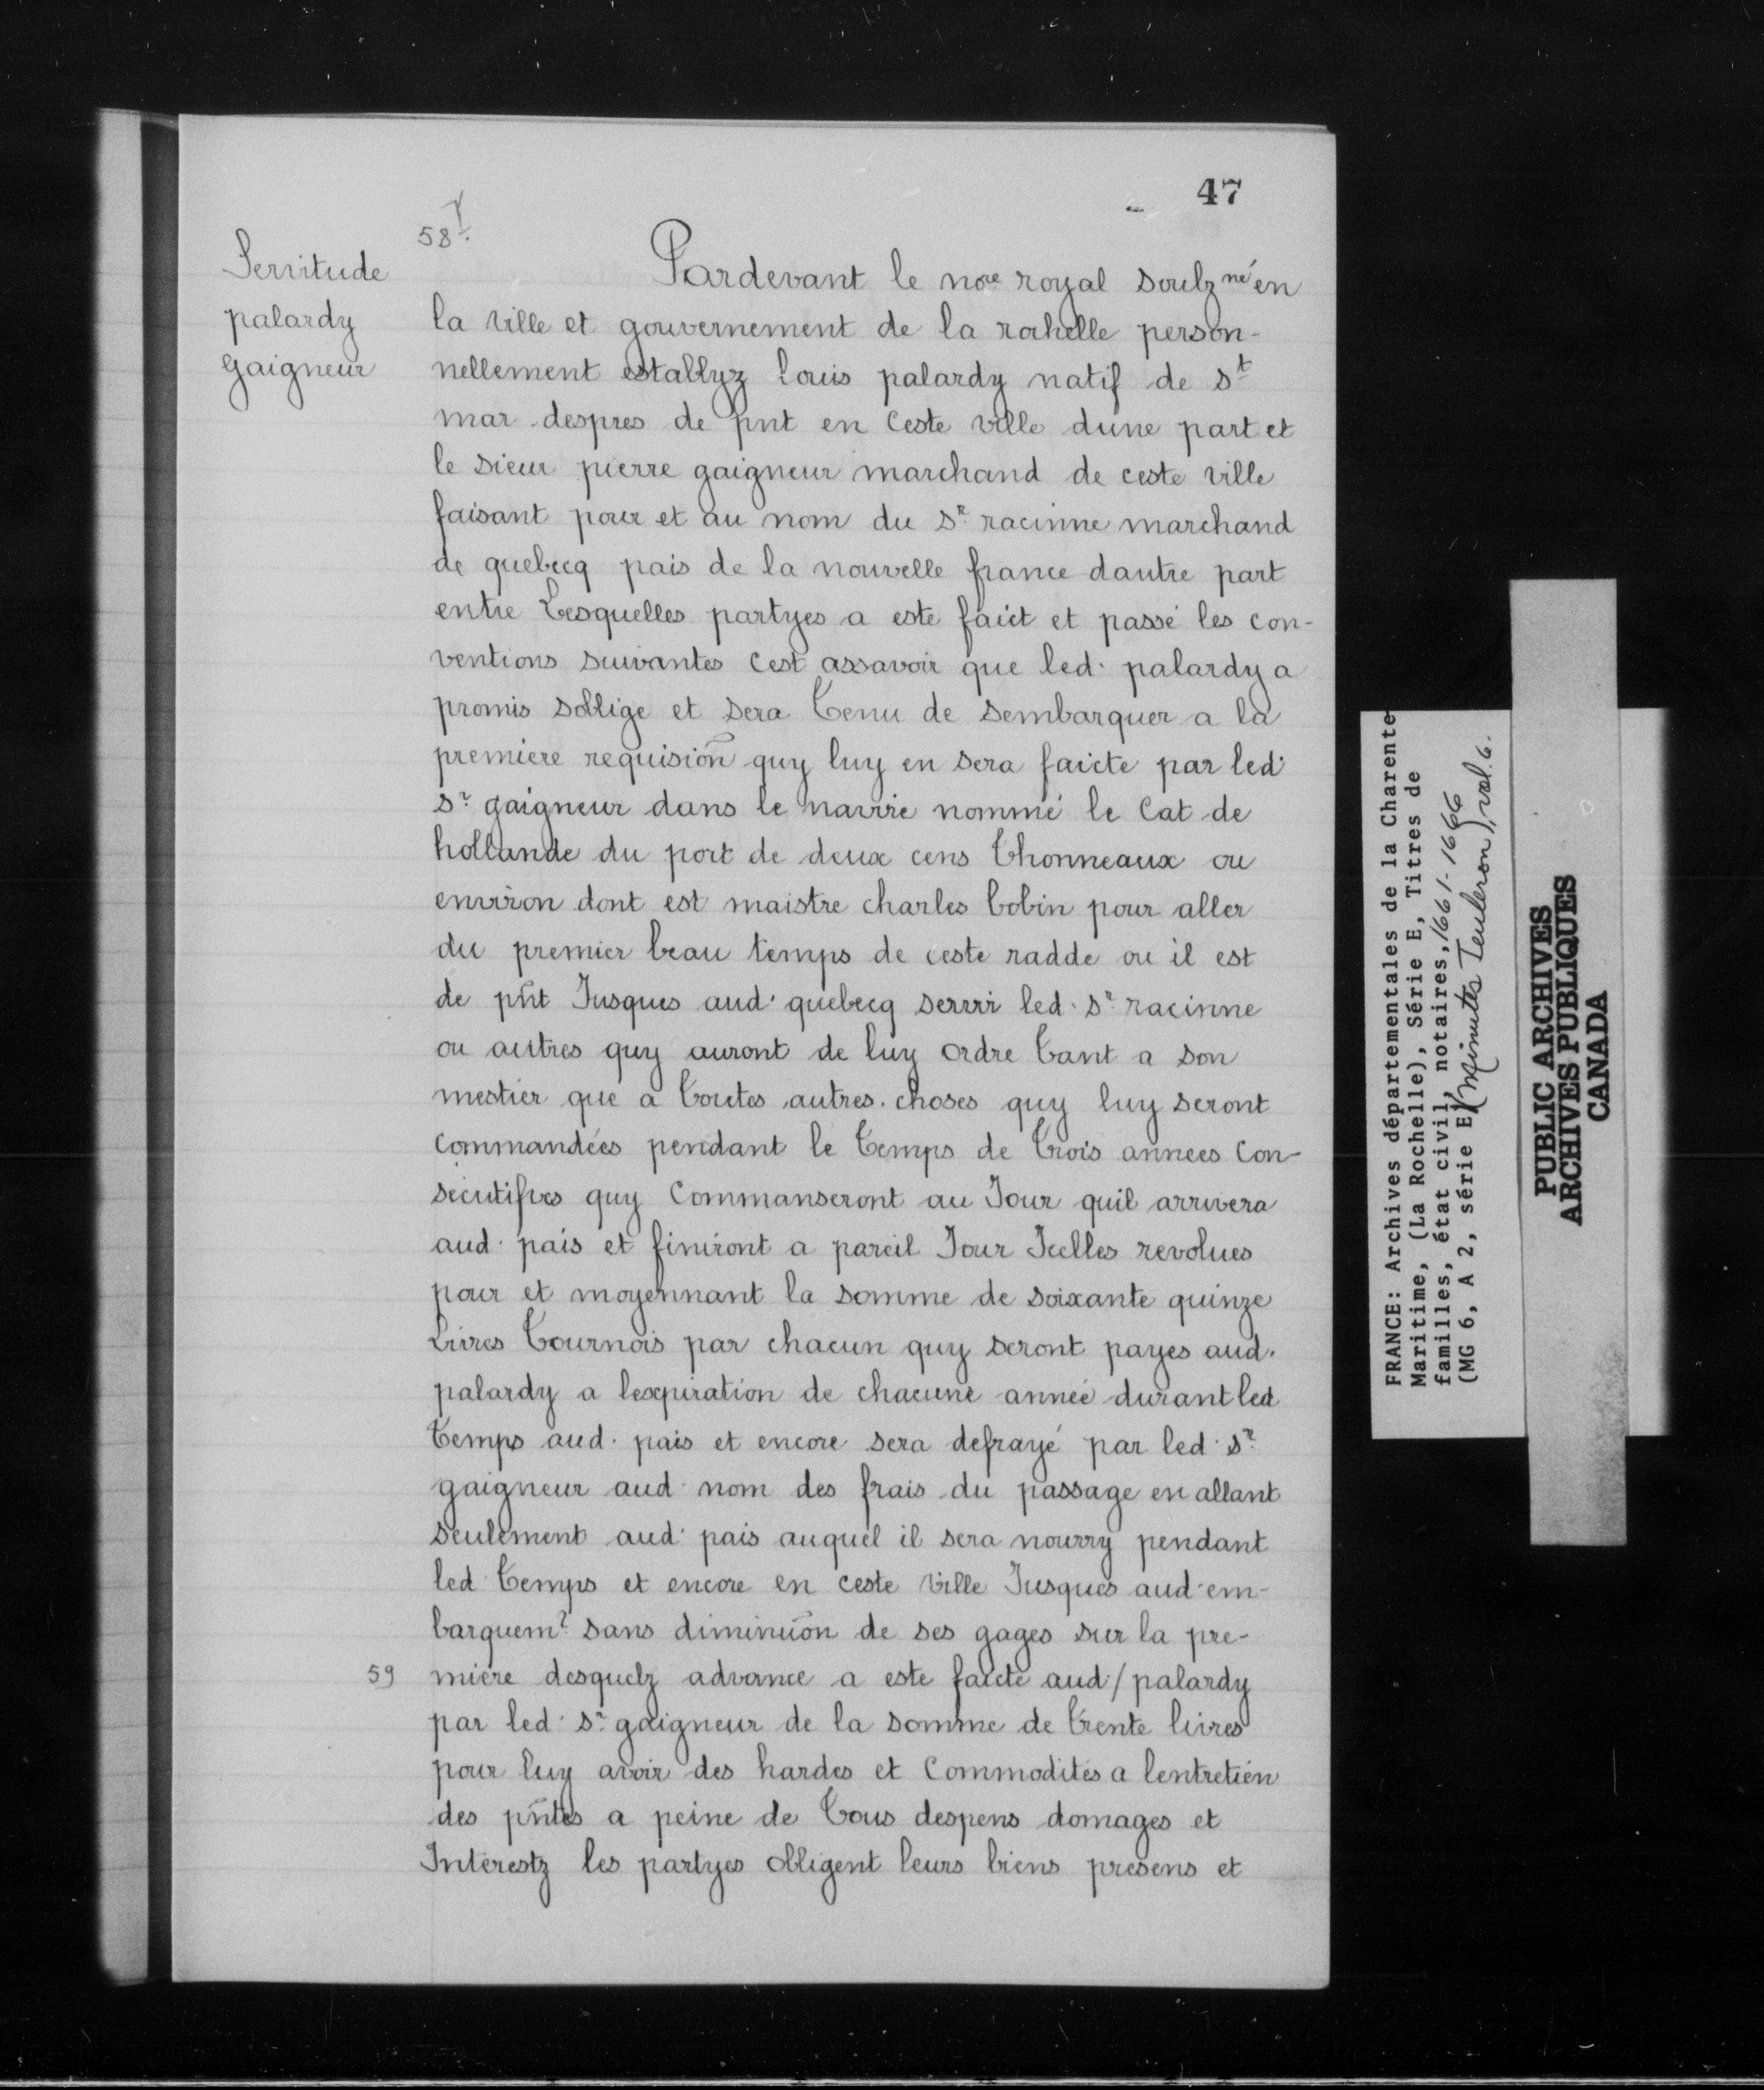 47
58 r.
Servitude
palardy
gaigneur
Pardevant le nore royal soulz né en
la ville et gouvernement de la rochelle person-
nellement establyz Louis palardy natif de st
mar despres de pnt en ceste ville dune part et
le sieur pierre gaigneur marchand de ceste ville
faisant pour et au nom du sr racinne marchand
de quebecq pais de la nouvelle france dautre part
entre Lesquelles partyes a este faict et passé les con-
ventions suivantes cest assavoir que led. palardy a
promis soblige et sera tenu de sembarquer a la
premiere requision quy luy en sera faicte par led.
sr gaigneur dans le navire nommé le Cat de
hollande du port de deux cens thonneaux ou
environ dont est maistre charles bobin pour aller
du premier beau temps de ceste radde ou il est
de pñt Jusques aud. quebecq servir led. sr racinne
ou autres quy auront de luy ordre tant a son
mestier que a toutes autres choses quy luy seront
commandées pendant le temps de trois annees con-
secutifves quy commanseront au Jour quil arrivera
aud. pais et finiront a pareil Jour Icelles revolues
pour et moyennant la somme de soixante quinze
Livres tournois par chacun quy seront payes aud.
palardy a lexpiration de chacune année durant led
temps aud. pais et encore sera defrayé par led. sr
gaigneur aud. nom des frais du passage en allant
seulement aud. pais auquel il sera nourry pendant
led. temps et encore en ceste ville Jusques aud. em-
barquemt sans diminuõn de ses gages sur la pre-
59 miere desquelz advance a este faicte aud/palardy
par led. sr gaigneur de la somme de trente livres
pour luy avoir des hardes et commodités a lentretien
des pñtes a peine de tous despens domages et
Interestz les partyes obligent leurs biens presens et
FRANCE: Archives départementales de la Charente-
Maritime, (La Rochelle), Série E, Titres de
familles, état civil, notaires, 1661-1666
(MG 6, A 2, série E) (Minutes Teuleron), vol. 6.
PUBLIC ARCHIVES
ARCHIVES PUBLIQUES
CANADA